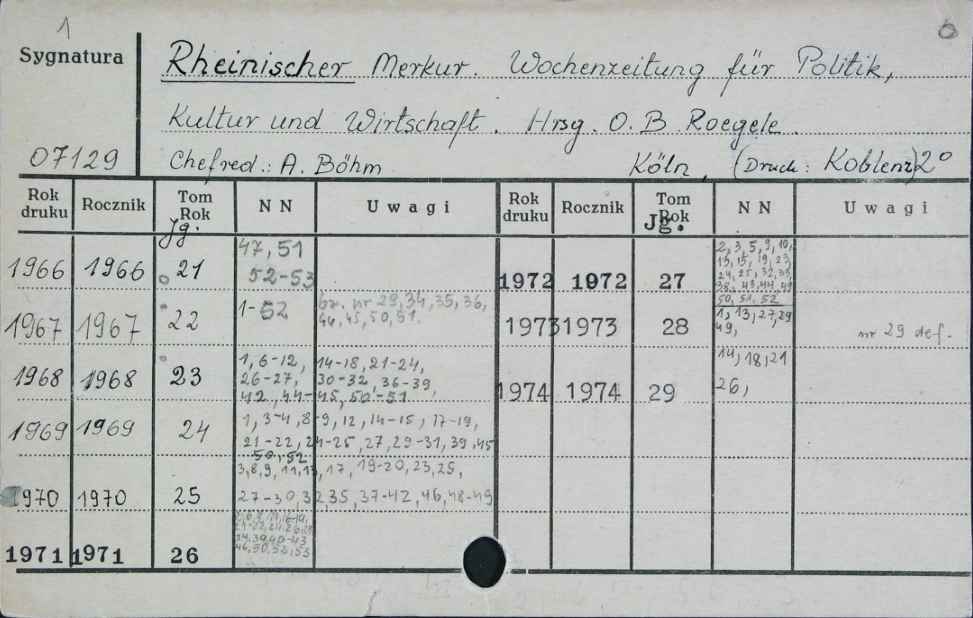 1
6
Sygnatura
Rheinischer Merkur. Wochenzeitung für Politik,
Kultur und Wirtschaft. Hrsg. O. B. Roegele.
07129
Chefred.: A. Böhm
Köln, (Druck: Koblenz) 2°
Rok druku Rocznik Tom Rok Jg. NN Uwagi Rok druku Rocznik Tom Rok Jg. NN Uwagi
1966 1966 21 47, 51
52-53
1967 1967 22 1-52 bz. nr 29, 34, 35, 36,
44, 45, 50, 51.
1968 1968 23 1, 6-12, 14-18, 21-24,
26-27, 30-32, 36-39,
42, 44-45, 50-51
1969 1969 24 1, 3-4, 8-9, 12, 14-15, 17-19,
21-22, 24-25, 27, 29-31, 39, 45
50, 52
1970 1970 25 3, 8, 9, 11, 13, 17, 19-20, 23, 25,
27-30, 32, 35, 37-42, 46, 48-49
1971 1971 26
46, 50, 52, 53
1972 1972 27 2, 3, 5, 9, 10,
13, 15, 19, 23,
24, 25, 32, 35
38, 43, 44, 49
50, 51, 52
1973 1973 28 1, 13, 27, 29 nr 29 def.
49,
1974 1974 29 14, 18, 21
26,